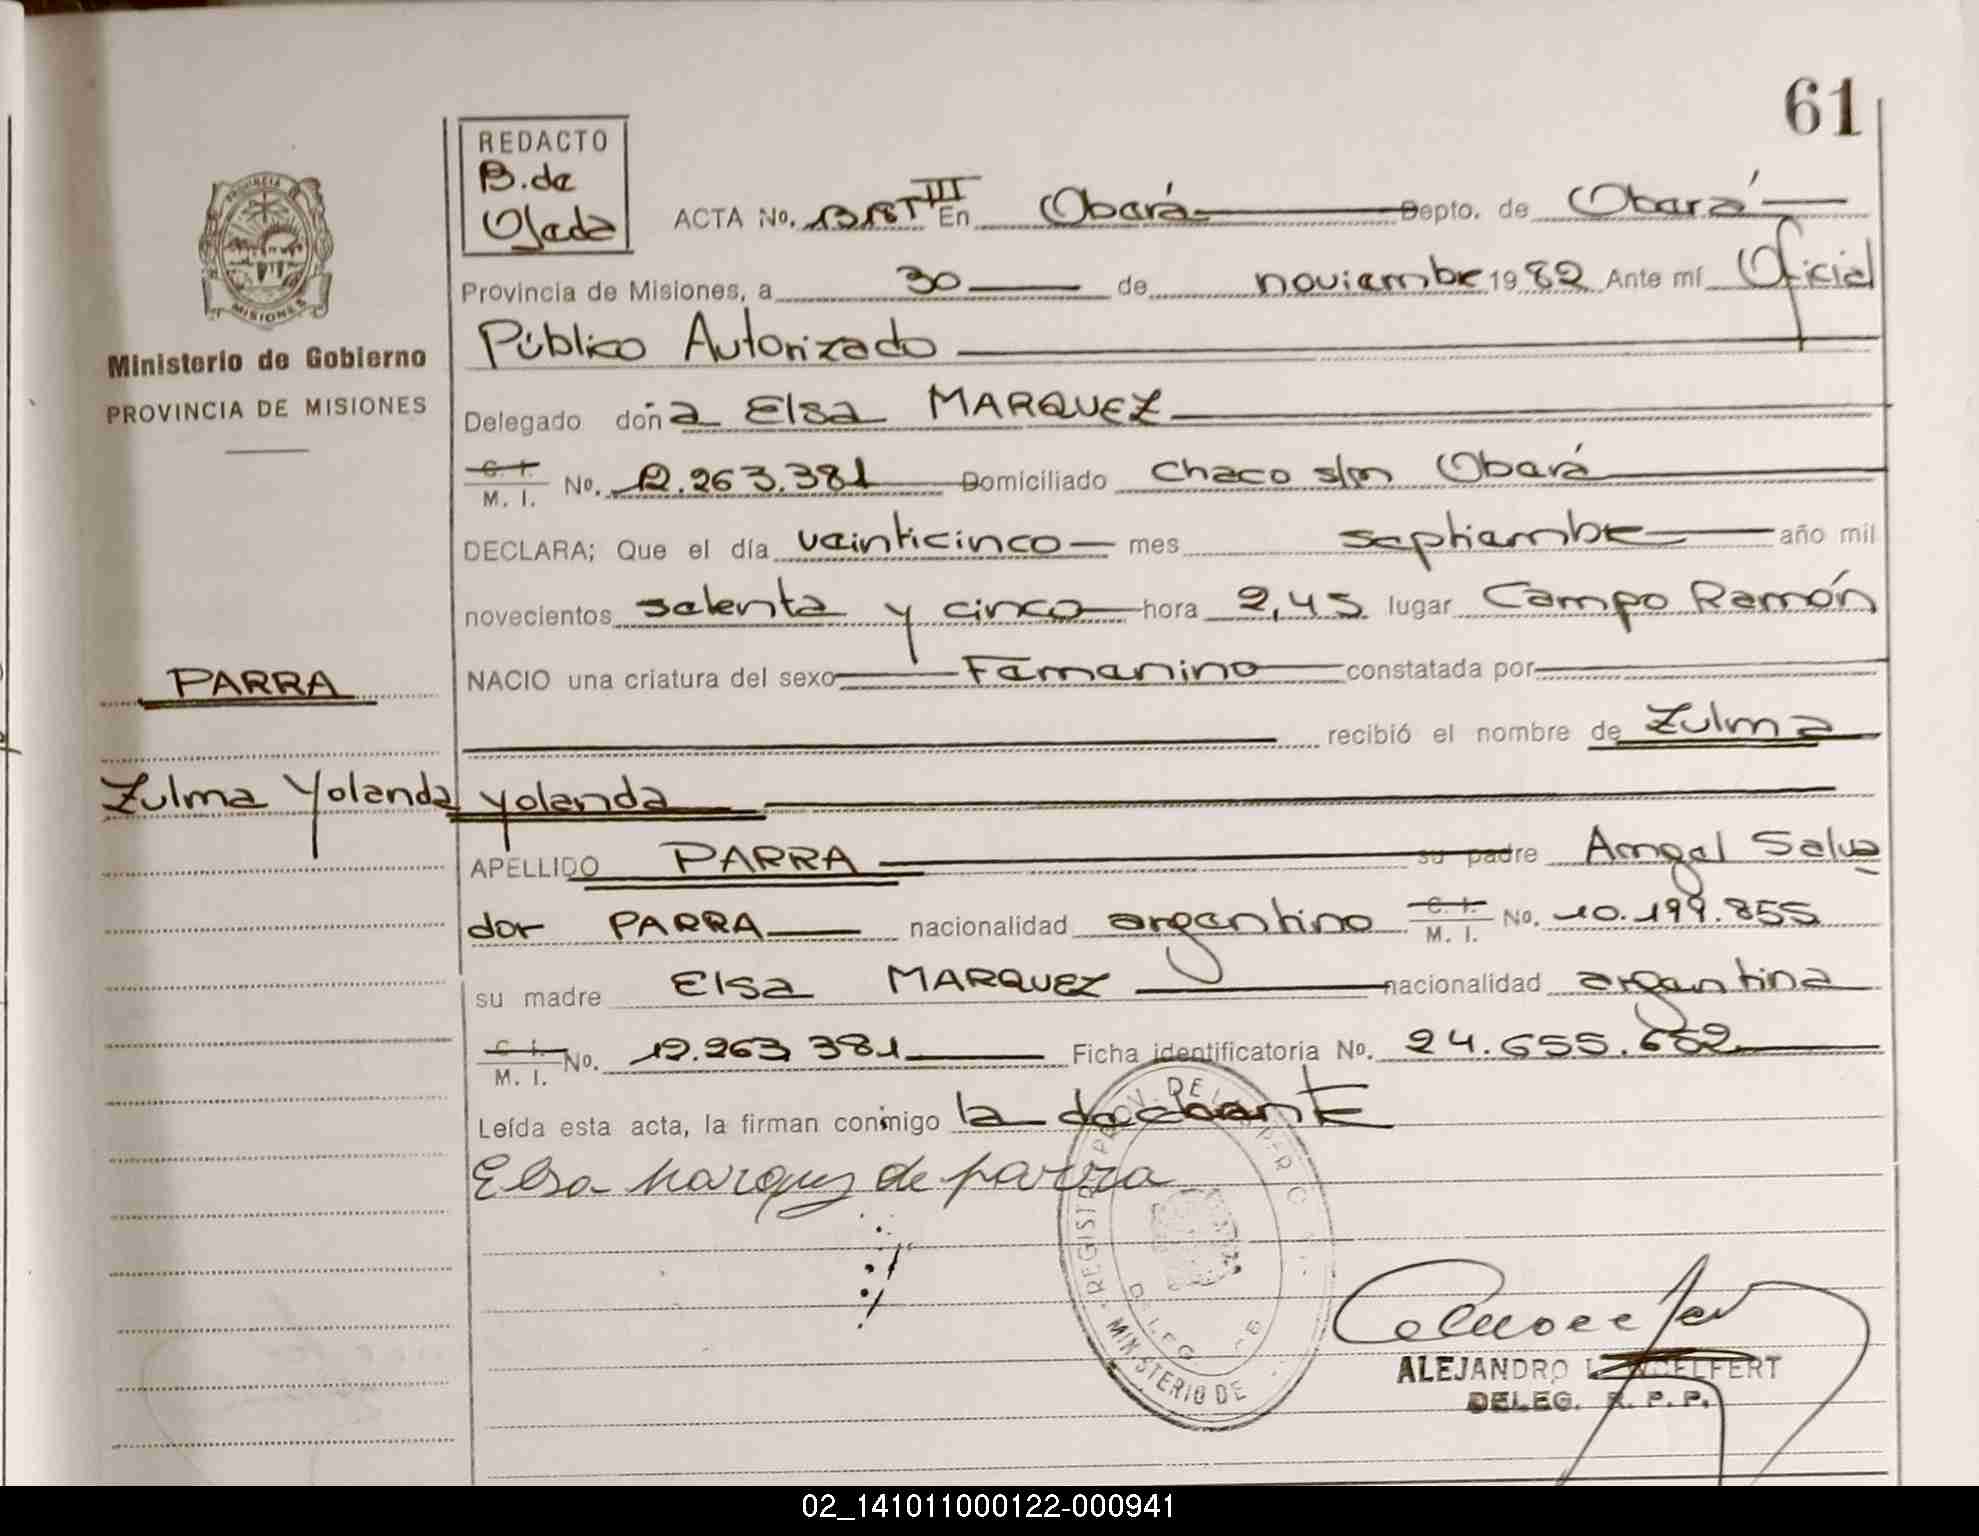 61
REDACTO
B. de
Ojeda
ACTA No. T III En Oberá Depto. de Oberá
Provincia de Misiones, a 30 de noviembre 1982 Ante mí Oficial
Público Autorizado
Ministerio de Gobierno
PROVINCIA DE MISIONES
Delegado doña Elsa MARQUEZ
C. I.
M. I. No. 12.263.381 Domiciliado Chaco s/n Oberá
DECLARA; Que el día veinticinco mes septiembre año mil
novecientos setenta y cinco hora 2,45 lugar Campo Ramón
PARRA
NACIO una criatura del sexo Femenino constatada por
recibió el nombre de Zulma
Zulma Yolanda
Yolanda
APELLIDO PARRA su padre Angel Salva
dor PARRA nacionalidad argentino C. I. M. I. No. 10.199.855
su madre Elsa MARQUEZ nacionalidad argentina
C. I. M. I. No. 12.263.381 Ficha identificatoria No. 24.655.652
Leída esta acta, la firman conmigo la declarante
Elsa Marquez de parra
REGISTR PROV. DE L PER
MINISTERIO DE
DELEG
ALEJANDRO
DELEG. R. P. P.
PROVINCIA DE
MISIONES
02_141011000122-000941